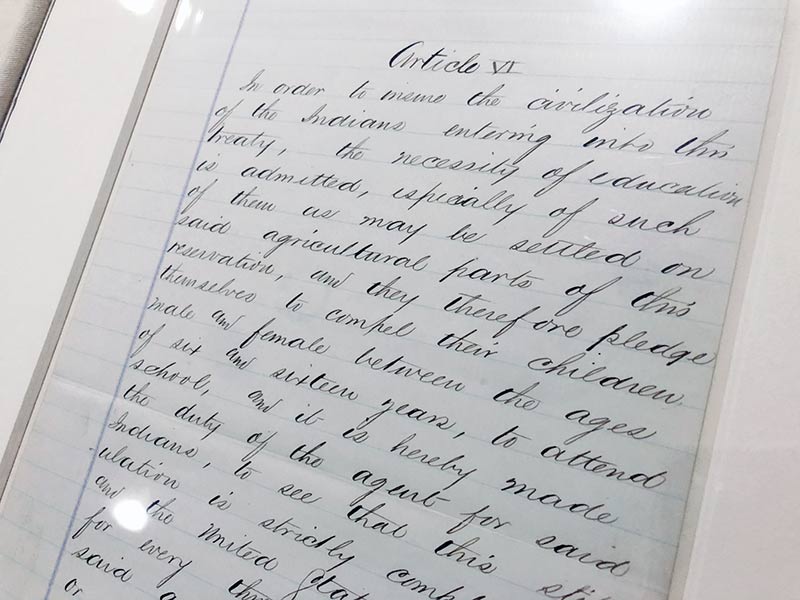 Article VI
In order to insure the civilization
of the Indians entering into this
treaty, the necessity of education
is admitted, especially of such
of them as may be settled on
said agricultural parts of this
reservation, and they therefore pledge
themselves to compel their children
male and female between the ages
of six and sixteen years, to attend
school, and it is hereby made
the duty of the agent for said
Indians, to see that this sti
ulation is strictly comp
and the United Stat
for every th
said a
or